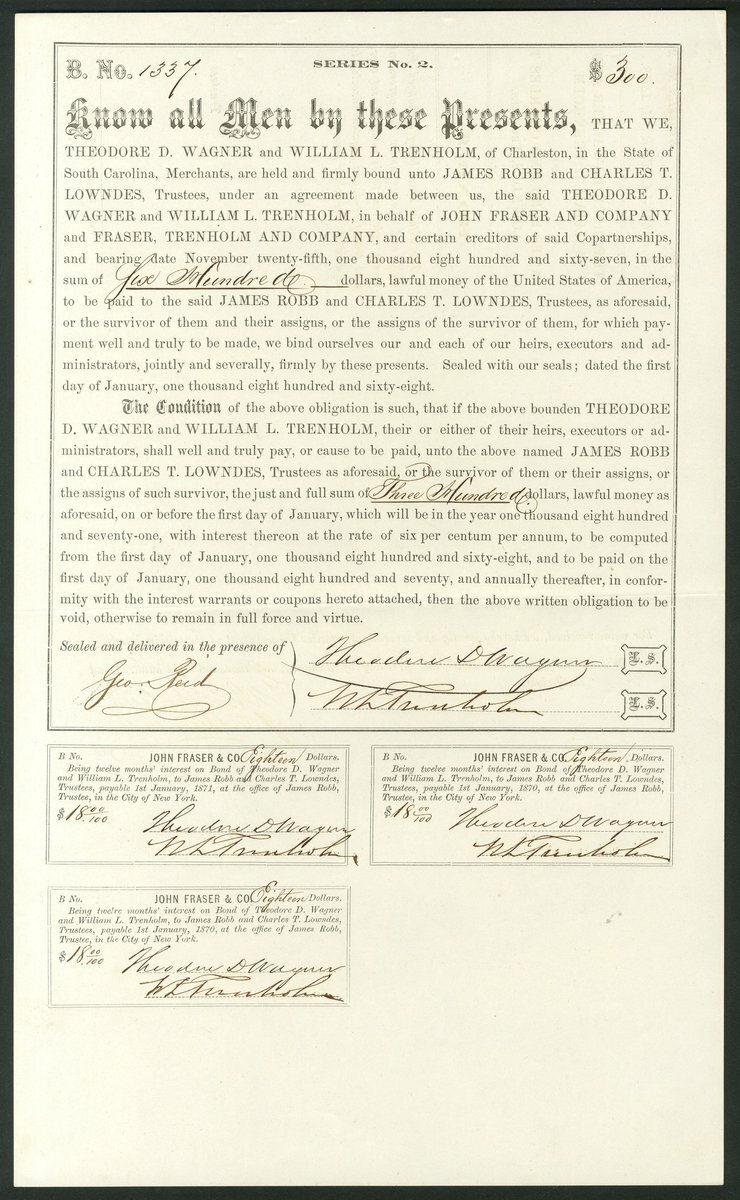 B. No. 1337.
SERIES No. 2.
$ 300.
Know all Men by these Presents, THAT WE,
THEODORE D. WAGNER and WILLIAM L. TRENHOLM, of Charleston, in the State of
South Carolina, Merchants, are held and firmly bound unto JAMES ROBB and CHARLES T.
LOWNDES, Trustees, under an agreement made between us, the said THEODORE D.
WAGNER and WILLIAM L. TRENHOLM, in behalf of JOHN FRASER AND COMPANY
and FRASER, TRENHOLM AND COMPANY, and certain creditors of said Copartnerships,
and bearing date November twenty-fifth, one thousand eight hundred and sixty-seven, in the
sum of Six Hundred dollars, lawful money of the United States of America,
to be paid to the said JAMES ROBB and CHARLES T. LOWNDES, Trustees, as aforesaid,
or the survivor of them and their assigns, or the assigns of the survivor of them, for which pay-
ment well and truly to be made, we bind ourselves our and each of our heirs, executors and ad-
ministrators, jointly and severally, firmly by these presents. Sealed with our seals; dated the first
day of January, one thousand eight hundred and sixty-eight.
The Condition of the above obligation is such, that if the above bounden THEODORE
D. WAGNER and WILLIAM L. TRENHOLM, their or either of their heirs, executors or ad-
ministrators, shall well and truly pay, or cause to be paid, unto the above named JAMES ROBB
and CHARLES T. LOWNDES, Trustees as aforesaid, or the survivor of them or their assigns, or
the assigns of such survivor, the just and full sum of Three Hundred dollars, lawful money as
aforesaid, on or before the first day of January, which will be in the year one thousand eight hundred
and seventy-one, with interest thereon at the rate of six per centum per annum, to be computed
from the first day of January, one thousand eight hundred and sixty-eight, and to be paid on the
first day of January, one thousand eight hundred and seventy, and annually thereafter, in confor-
mity with the interest warrants or coupons hereto attached, then the above written obligation to be
void, otherwise to remain in full force and virtue.
Sealed and delivered in the presence of
Geo. Reid
Theodore D Wagner L. S.
W L Trenholm L. S.
B No. JOHN FRASER & CO. Eighteen Dollars.
Being twelve months' interest on Bond of Theodore D. Wagner
and William L. Trenholm, to James Robb and Charles T. Lowndes,
Trustees, payable 1st January, 1871, at the office of James Robb,
Trustee, in the City of New York.
$ 18 00/100
Theodore D Wagner
W L Trenholm
B No. JOHN FRASER & CO. Eighteen Dollars.
Being twelve months' interest on Bond of Theodore D. Wagner
and William L. Trenholm, to James Robb and Charles T. Lowndes,
Trustees, payable 1st January, 1870, at the office of James Robb,
Trustee, in the City of New York.
$ 18 00/100
Theodore D Wagner
W L Trenholm
B No. JOHN FRASER & CO. Eighteen Dollars.
Being twelve months' interest on Bond of Theodore D. Wagner
and William L. Trenholm, to James Robb and Charles T. Lowndes,
Trustees, payable 1st January, 1870, at the office of James Robb,
Trustee, in the City of New York.
$ 18 00/100
Theodore D Wagner
W L Trenholm